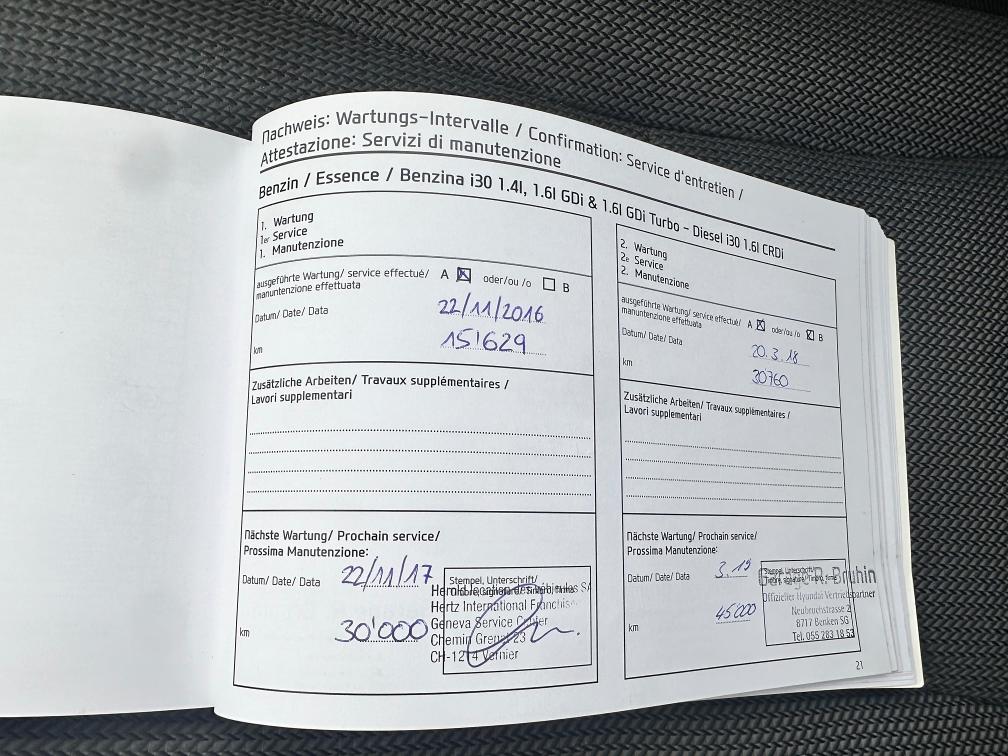 Nachweis: Wartungs-Intervalle / Confirmation: Service d'entretien /
Attestazione: Servizi di manutenzione
Benzin / Essence / Benzina i30 1.4l, 1.6l GDi & 1.6l GDi Turbo - Diesel i30 1.6l CRDi
1. Wartung
1er Service
1. Manutenzione
ausgeführte Wartung/ service effectué/ A oder/ou /o B
manuntenzione effettuata
Datum/ Date/ Data 22/11/2016
km 15'629
Zusätzliche Arbeiten/ Travaux supplémentaires /
Lavori supplementari
Nächste Wartung/ Prochain service/
Prossima Manutenzione:
Datum/ Date/ Data 22/11/17
km 30'000
Stempel, Unterschrift/
Timbre, signature/ Timbro, firma
Hertz International Franchise
Geneva Service
Chemin 23
CH-1214 Vernier
2. Wartung
2e Service
2. Manutenzione
ausgeführte Wartung/ service effectué/ A oder/ou /o B
manuntenzione effettuata
Datum/ Date/ Data 20.3.18
km 30760
Zusätzliche Arbeiten/ Travaux supplémentaires /
Lavori supplementari
Nächste Wartung/ Prochain service/
Prossima Manutenzione:
Datum/ Date/ Data 3.19
km 45'000
Stempel, Unterschrift/
Timbre, signature/ Timbro, firma
Garage R. Bruhin
Offizieller Hyundai Vertriebspartner
Neubruchstrasse 2
8717 Benken SG
Tel. 055 283 18 53
21